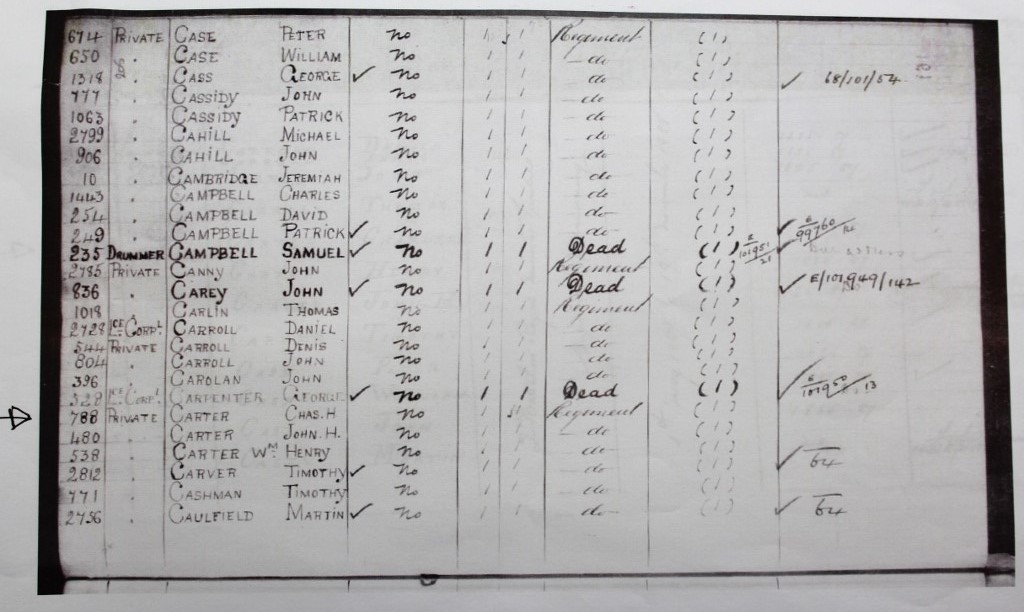 674 PRIVATE CASE PETER No 1 s 1 Regiment (1)
650 " CASE WILLIAM No 1 1 -do (1)
1318 " CASS GEORGE ✓ No 1 1 -do (1) ✓ 68/101/54
777 " CASSIDY JOHN No 1 1 -do (1)
1063 " CASSIDY PATRICK No 1 1 -do (1)
2799 " CAHILL MICHAEL No 1 1 -do (1)
906 " CAHILL JOHN No 1 1 -do (1)
10 " CAMBRIDGE JEREMIAH No 1 1 -do (1)
1443 " CAMPBELL CHARLES No 1 1 -do (1)
254 " CAMPBELL DAVID No 1 1 -do (1)
249 " CAMPBELL PATRICK ✓ No 1 1 -do (1) ✓ E/99760
235 DRUMMER CAMPBELL SAMUEL ✓ No 1 1 Dead (1) E/101951/21 ✓
2785 PRIVATE CANNY JOHN No 1 1 Regiment (1)
836 " CAREY JOHN ✓ No 1 1 Dead (1) ✓ E/101949/142
1018 " CARLIN THOMAS No 1 1 Regiment (1)
2728 LCE CORPL CARROLL DANIEL No 1 1 -do (1)
544 PRIVATE CARROLL DENIS No 1 1 -do (1)
804 " CARROLL JOHN No 1 1 -do (1)
396 " CAROLAN JOHN No 1 1 -do (1)
528 LCE CORPL CARPENTER GEORGE ✓ No 1 1 Dead (1) ✓ E/101950/13
788 PRIVATE CARTER CHAS. H No 1 s1 Regiment (1)
480 " CARTER JOHN. H. No 1 1 -do (1)
538 " CARTER WM HENRY No 1 1 -do (1)
2812 " CARVER TIMOTHY ✓ No 1 1 -do (1) ✓ 64
771 " CASHMAN TIMOTHY No 1 1 -do (1)
2756 " CAULFIELD MARTIN ✓ No 1 1 -do (1) ✓ 64